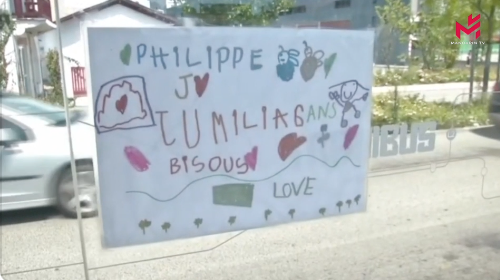 PHILIPPE
J
TUMILIAGANS
BISOUS
LOVE
IBUS